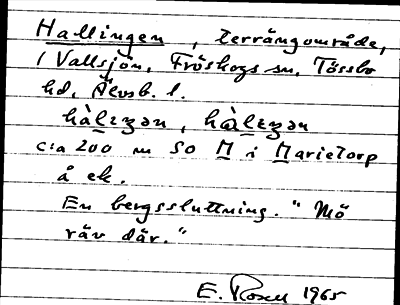 Hallingen, terrängområde,
i Vallsjön, Fröskogs sn, Tössbo
hd, Älvsb. l.
hàlɩŋən, hàlɩŋən
c:a 200 m SO M i Marietorp
å ek.
En bergssluttning. "Mö
räv där."
E. Rosell 1965